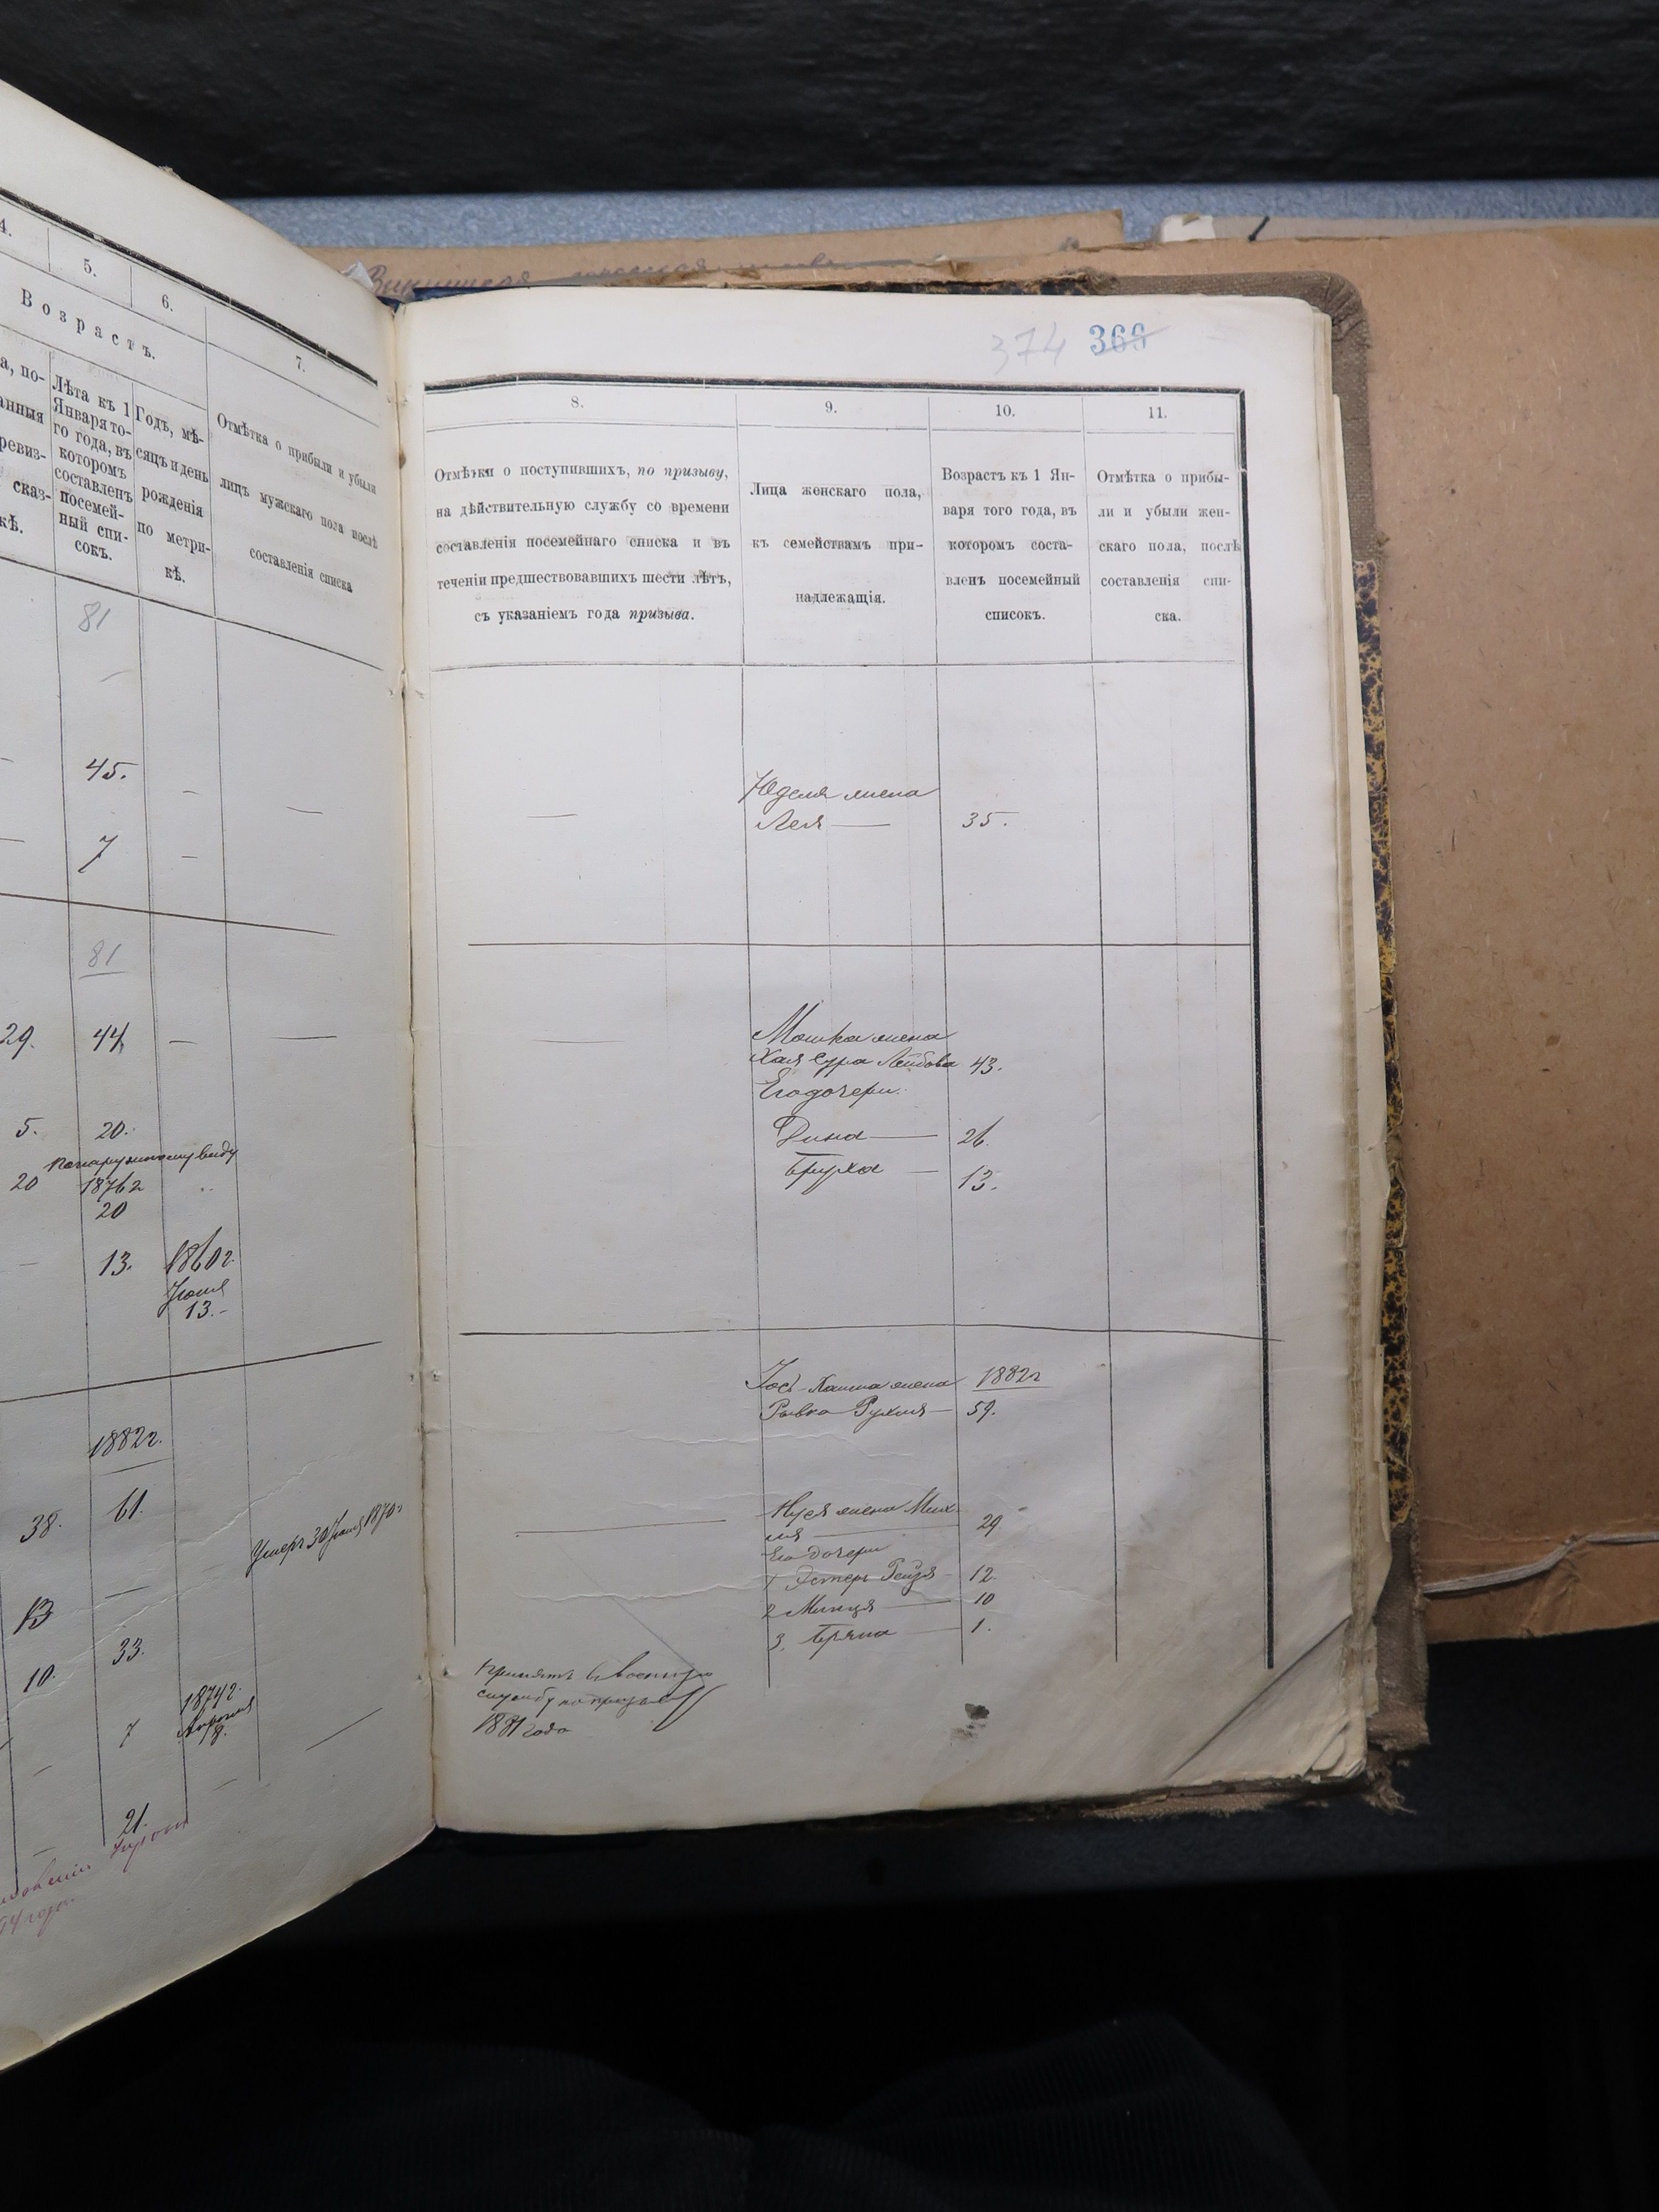 4.
5.
6.
7.
Возрастъ.
а, по-
анныя
ревиз-
сказ-
кѣ.
Лѣта къ 1
Января то-
го года, въ
которомъ
составленъ
посемей-
ный спи-
сокъ.
Годъ, мѣ-
сяцъ и день
рожденія
по метри-
кѣ.
Отмѣтка о прибыли и убыли
лицъ мужскаго пола послѣ
составленія списка
81
45.
7
81
29.
44
5.
20.
по наружному виду
20
1876 г
20
13.
1860 г.
Іюня
13.
1882 г.
38.
61.
Умеръ 30 Іюня 1870 г
13
10.
33.
7
1874 г.
Апреля
18.
21.
374 366
8.
9.
10.
11.
Отмѣтки о поступившихъ, по призыву,
на дѣйствительную службу со времени
составленія посемейнаго списка и въ
теченіи предшествовавшихъ шести лѣтъ,
съ указаніемъ года призыва.
Лица женскаго пола,
къ семействамъ при-
надлежащія.
Возрастъ къ 1 Ян-
варя того года, въ
которомъ соста-
вленъ посемейный
списокъ.
Отмѣтка о прибы-
ли и убыли жен-
скаго пола, послѣ
составленія спи-
ска.
Юделя жена
Лея — 35.
Мошка жена
Хая Сура Лейбова 43.
Его дочери:
Дина — 26.
Бруха — 13.
жена 1882 г
Рывка Рухля — 59.
Нуся жена Мих-
ля — 29
Его дочери
1 Эстеръ Рейзя — 12.
2 Минця — 10
3. — 1.
Принятъ въ военную
службу по призыву
1881 года